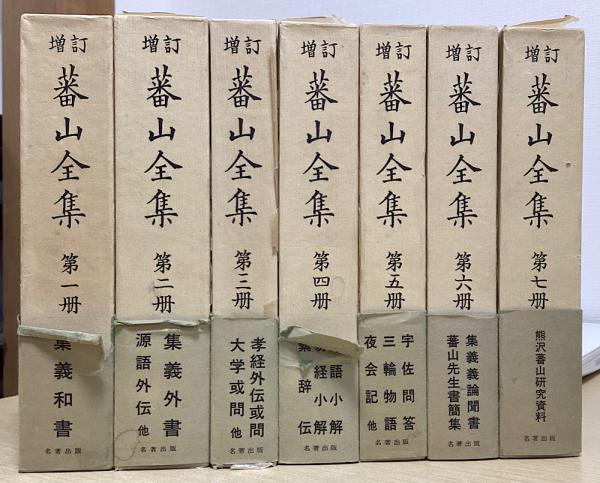 増訂
蕃山全集
第一册
集義和書
名著出版
増訂
蕃山全集
第二册
集義外書
源語外伝 他
名著出版
増訂
蕃山全集
第三册
孝経外伝或問
大学或問 他
名著出版
増訂
蕃山全集
第四册
語小解
経小解
繋辞伝
名著出版
増訂
蕃山全集
第五册
宇佐問答
三輪物語
夜会記 他
名著出版
増訂
蕃山全集
第六册
集義義論聞書
蕃山先生書簡集
名著出版
増訂
蕃山全集
第七册
熊沢蕃山研究資料
名著出版